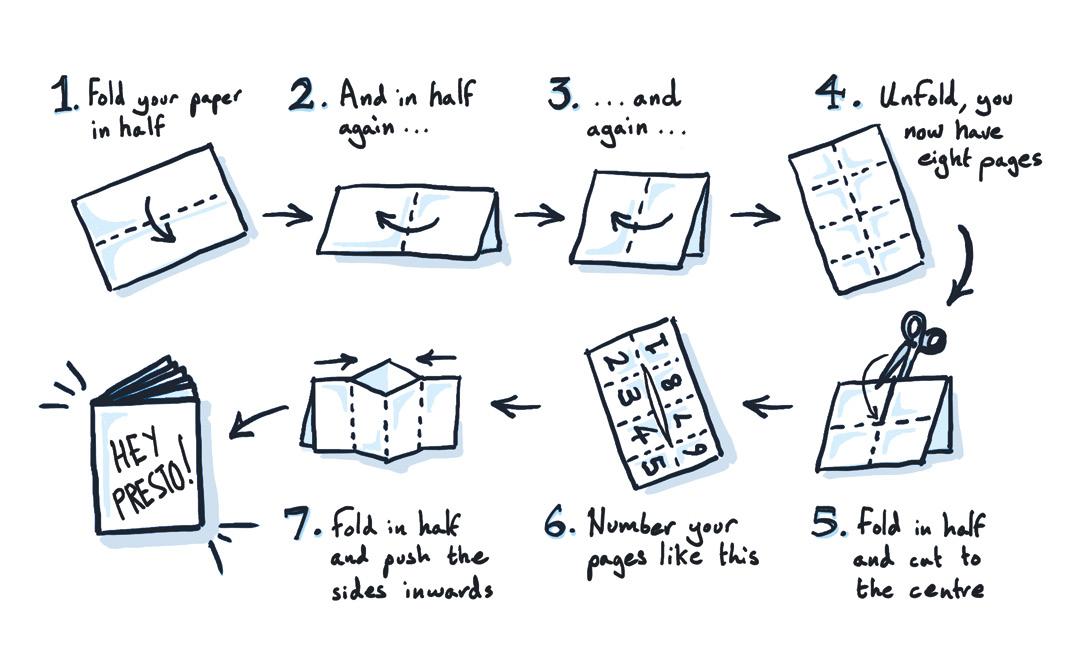 1. Fold your paper
in half
2. And in half
again ...
3. ... and
again ...
4. Unfold, you
now have
eight pages
5. Fold in half
and cut to
the centre
6. Number your
pages like this
1 2
8 3
7 4
6 5
7. Fold in half
and push the
sides inwards
HEY
PRESTO!